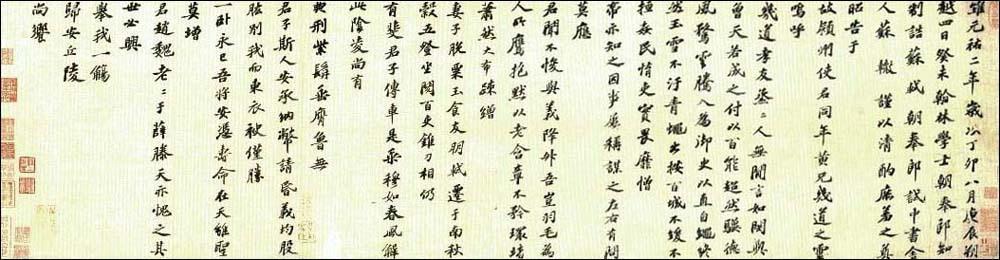 維元祐二年歲次丁卯八月庚辰朔
越四日癸未翰林學士朝奉郎知
制誥蘇軾朝奉郎試中書舍
人蘇轍謹以清酌庶羞之奠
昭告于
故潁州使君同年黃兄幾道之靈
嗚呼
幾道孝友烝二人無間言如閔與
曾天若成之付以百能超然驥德
風騖雲騰入為御史以直自繩終
然玉雪不汙青蠅出按百城不緩不
拒姦民惰吏實畏靡憎
帝亦知之因事屢稱謀之左右有問
莫應
君聞不悛與義降升吾豈羽毛為
人所鷹抱默以老含章不矜環堵
蕭然大布疎繒
妻子脫粟玉食友朋我遷于南秋
穀五登坐閱百吏錐刀相仍
有斐君子傳車是乘穆如春風解
此陰凌尚有
典刑紫髯垂膺魯無
君子斯人安承納幣請昏義均股
肱別我而東衣袂僅勝
一臥永已吾將安憑壽命在天雖聖
莫增
君趙魏老二于薛滕天亦愧之其
世必興
舉我一觴
歸安丘陵
尚饗